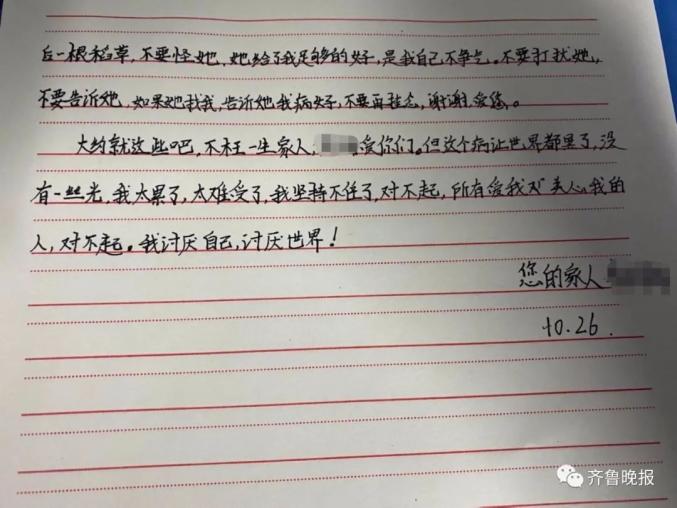 后一根稻草，不要怪她，她给了我足够的好，是我自己不争气。不要打扰她，
不要告诉她，如果她找我，告诉她我病好，不要再挂念，谢谢，爱您。
大约就这些吧，不枉一生家人，爱你们。但这个病让世界都黑了，没
有一丝光，我太累了，太难受了，我坚持不住了，对不起，所有爱我对关心我的
人，对不起。我讨厌自己，讨厌世界！
您的家人
10.26.
齐鲁晚报